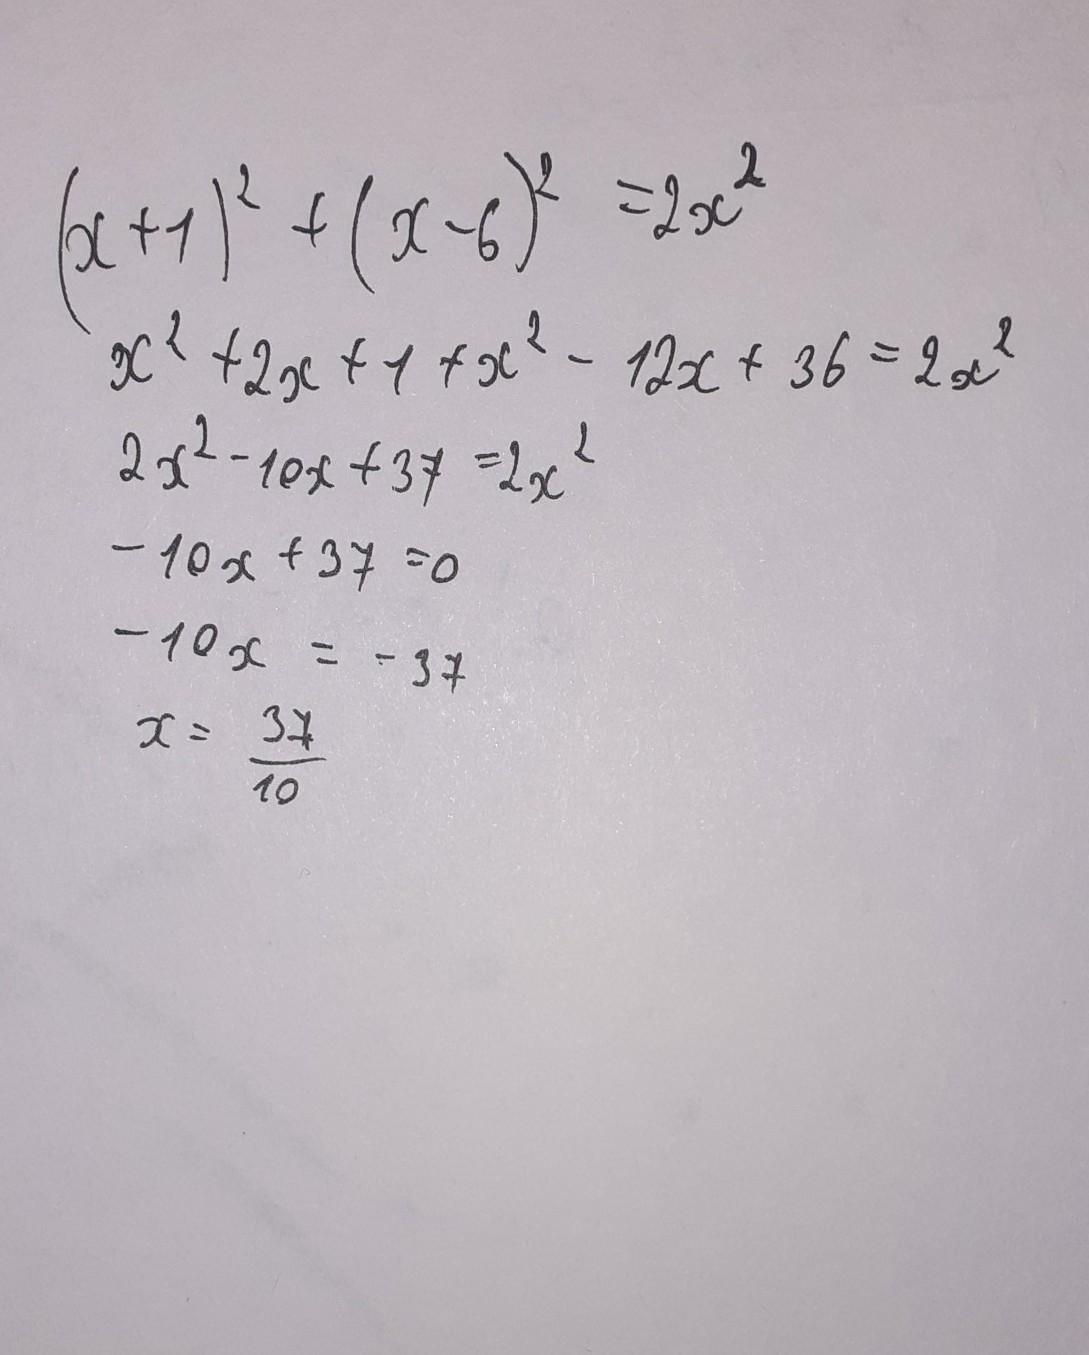 (x+1)² + (x-6)² = 2x²
x² + 2x + 1 + x² - 12x + 36 = 2x²
2x² - 10x + 37 = 2x²
-10x + 37 = 0
-10x = -37
x = 37/10